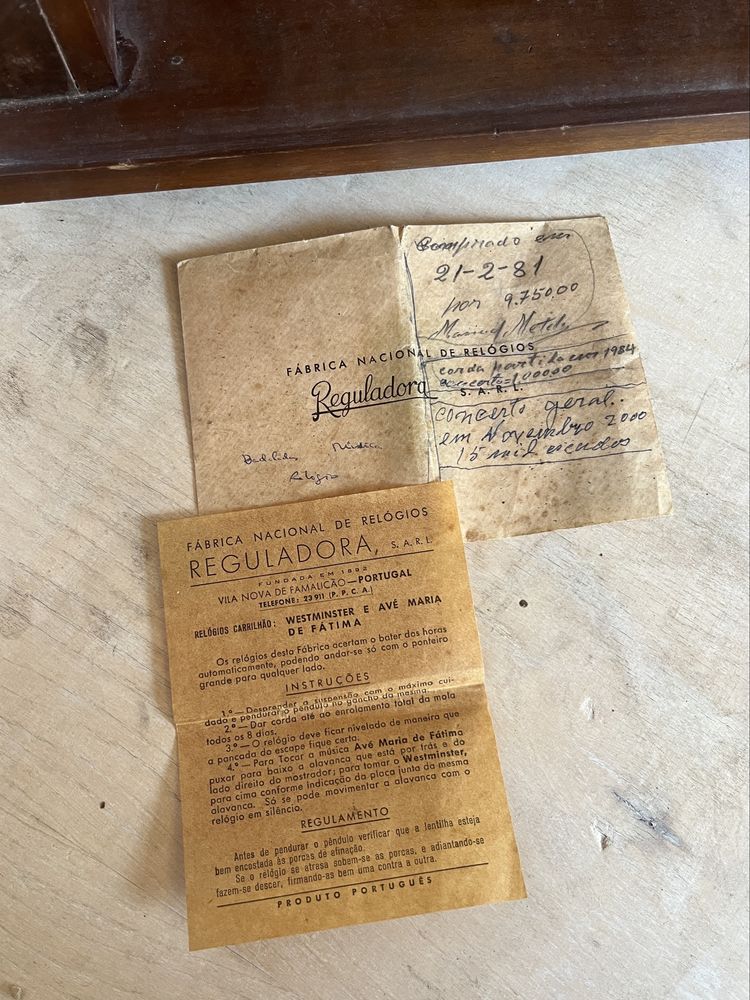 Comprado em
21-2-81
por 9.750.00
FÁBRICA NACIONAL DE RELÓGIOS
Reguladora S. A. R. L.
corda partida em 1984
concerto = 1000.00
concerto geral..
em Novembro 2000
15 mil escudos
Badaladas Música
Relógio
FÁBRICA NACIONAL DE RELÓGIOS
REGULADORA, S. A. R. L.
FUNDADA EM 1892
VILA NOVA DE FAMALICÃO—PORTUGAL
TELEFONE: 23911 (P. P. C. A.)
RELÓGIOS CARRILHÃO: WESTMINSTER E AVÉ MARIA
DE FÁTIMA
Os relógios desta Fábrica acertam o bater das horas
automaticamente, podendo andar-se só com o ponteiro
grande para qualquer lado.
INSTRUÇÕES
1.º — Desprender a suspensão com o máximo cui-
dado e pendurar o pêndulo no gancho da mesma.
2.º — Dar corda até ao enrolamento total da mola
todos os 8 dias.
3.º — O relógio deve ficar nivelado de maneira que
a pancada do escape fique certa.
4.º — Para Tocar a música Avé Maria de Fátima
puxar para baixo a alavanca que está por trás e do
lado direito do mostrador; para tomar o Westminster,
para cima conforme indicação da placa junto da mesma
alavanca. Só se pode movimentar a alavanca com o
relógio em silêncio.
REGULAMENTO
Antes de pendurar o pêndulo verificar que a lentilha esteja
bem encostada às porcas de afinação.
Se o relógio se atrasa sobem-se as porcas, e adiantando-se
fazem-se descer, firmando-as bem uma contra a outra.
PRODUTO PORTUGUÊS